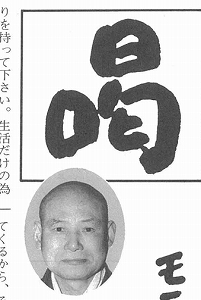 喝
モ
りを持って下さい。生活だけの為
てくるから、